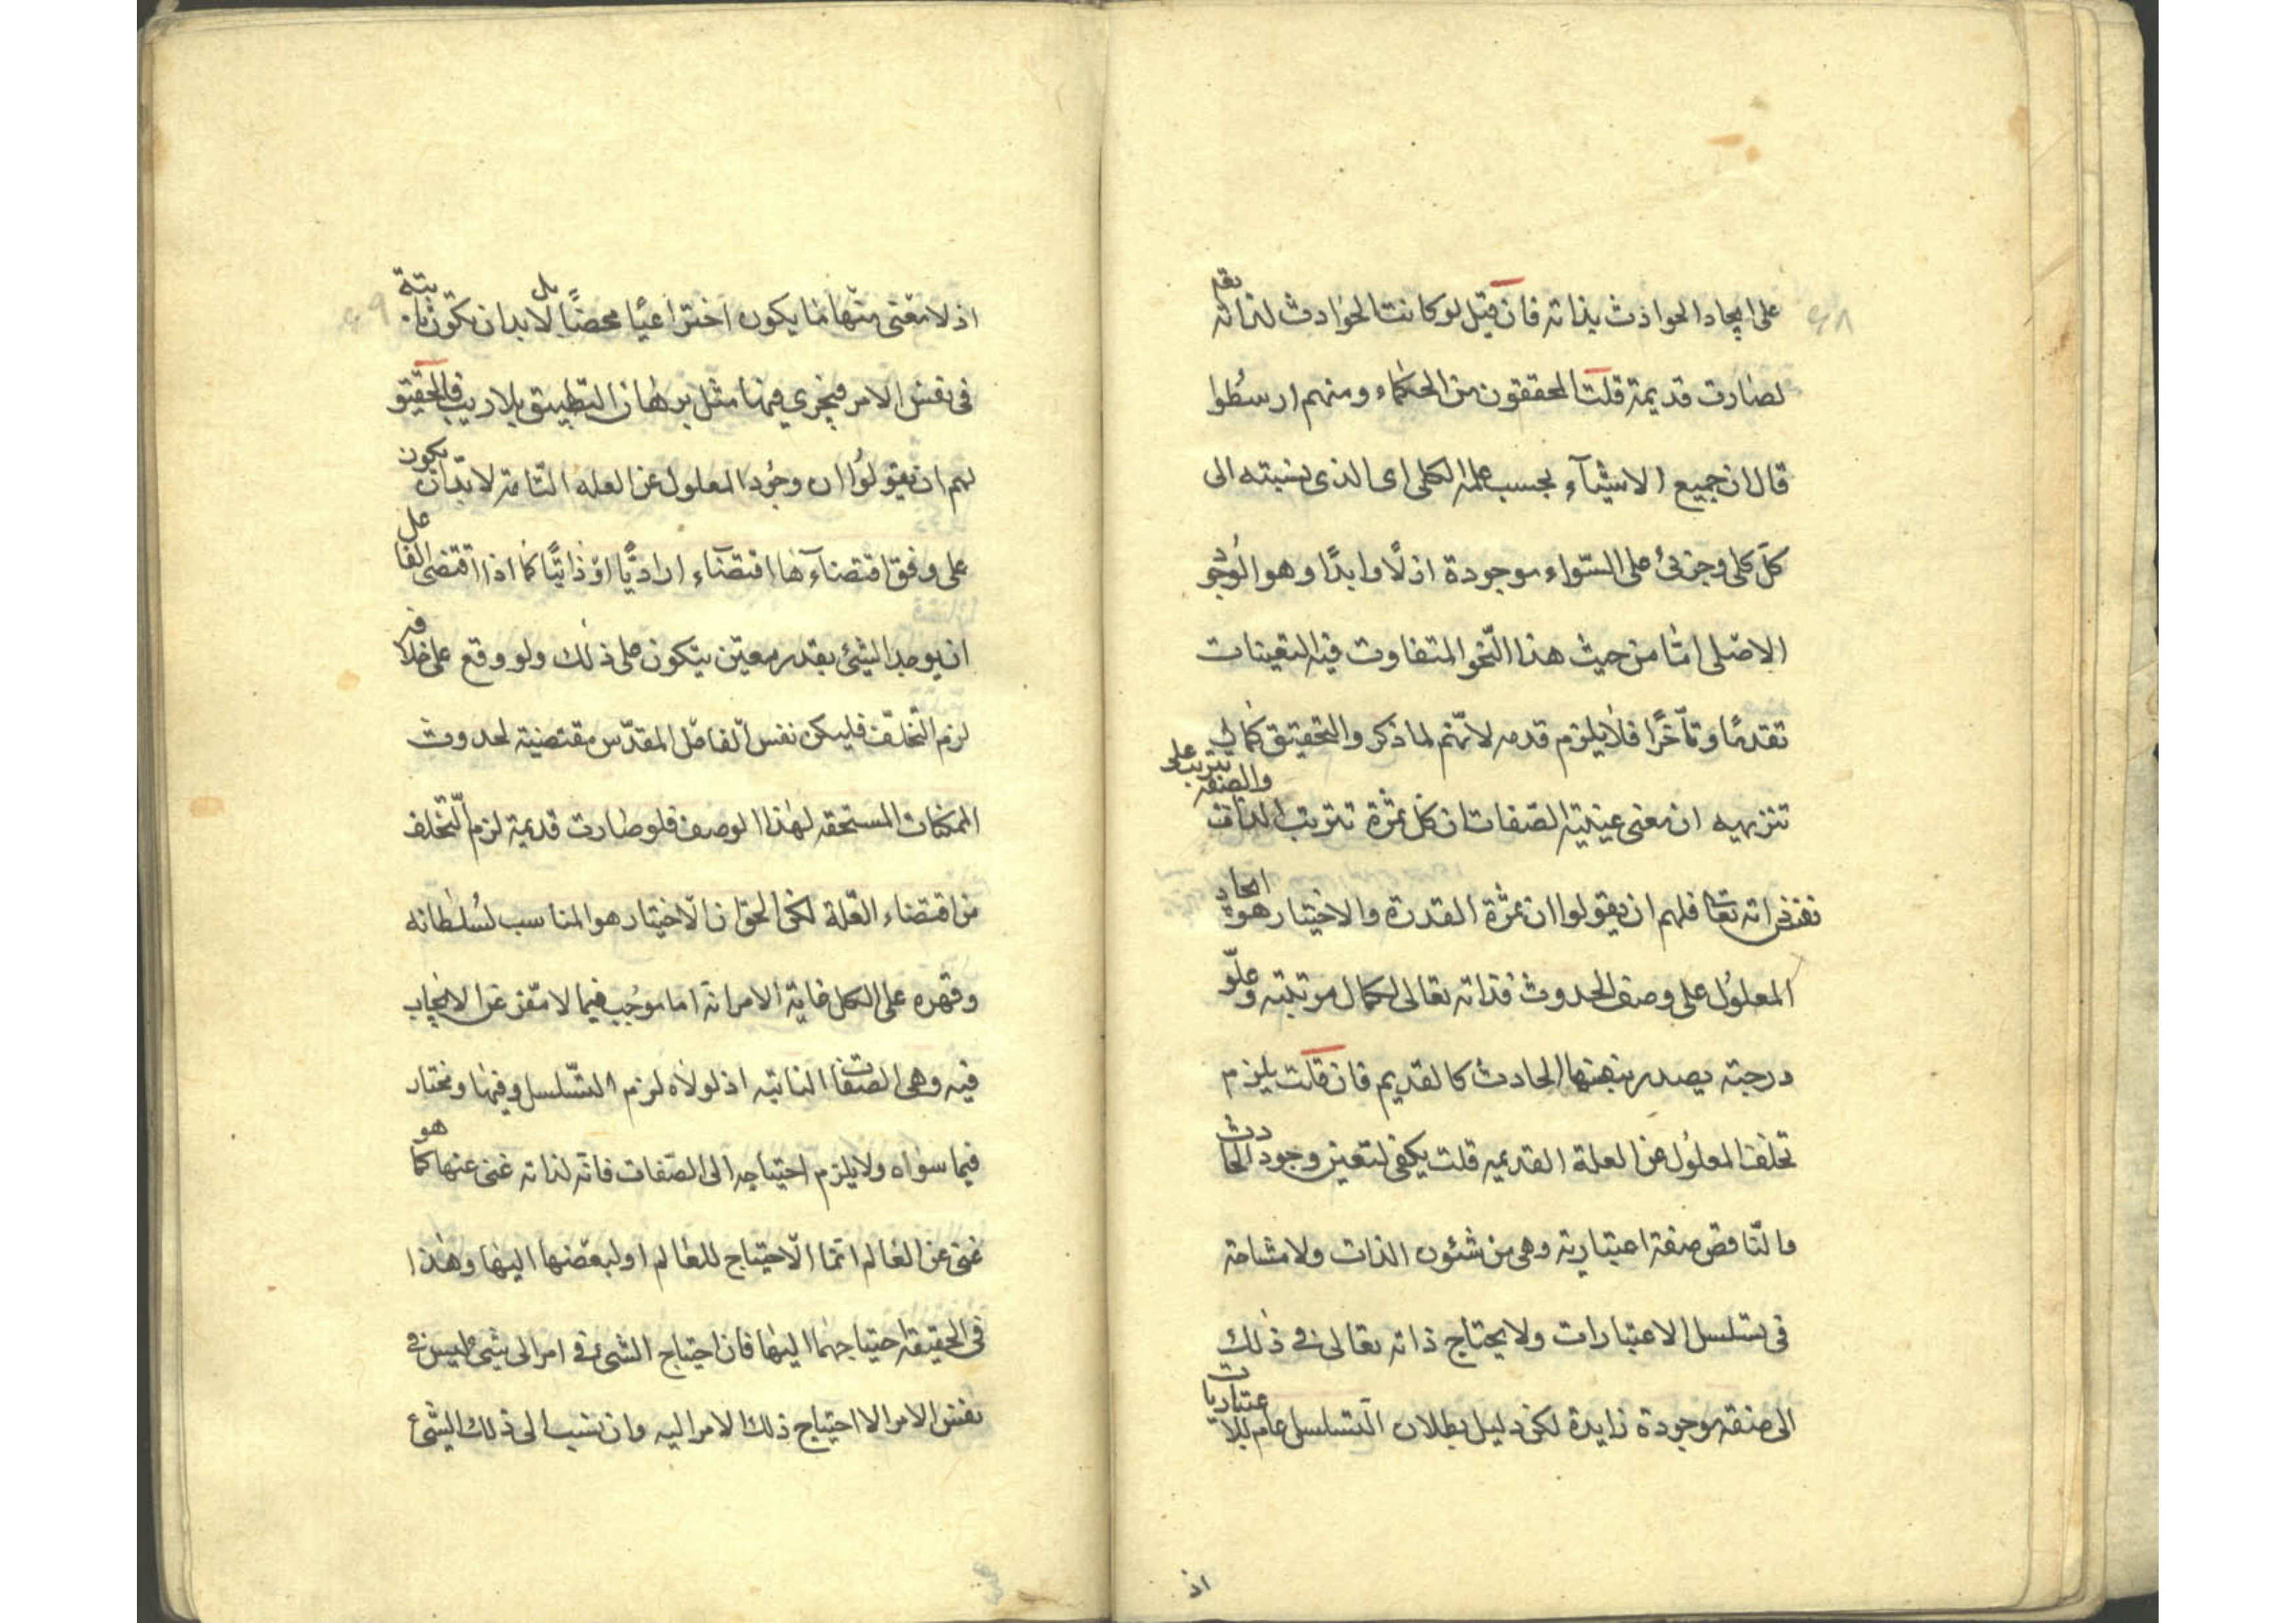 ٤٨
على ايجاد الحوادث بذاته فان قيل لو كانت الحوادث لذاته تعم
لصارت قديمة قلت المحققون من الحكماء ومنهم ارسطوا
قال ان جميع الاشياء بحسب علمه الكلى اى الذى نسبته الى
كل كلى وجزئ على السّواء موجودة ازلًا وابدًا وهو الوجود
الاصلى امّا من حيث هذا النّحو المتفاوت فيه التعينات
تقدمًا وتأخّرًا فلا يلزم قدمه لانّهم لما ذكر والتحقيق كما
تنزيهيه ان معنى عينيّة الصّفات ان كل ثمرة تترتب على الذات والصفة تترتب على
نفس ذاته تعا فلهم ان يقولوا ان ثمرة القدرة والاختيار هو ايجاد
المعلول على وصف الحدوث فذاته تعالى لكمال مرتبته وعلوّ
درجته يصدر منها الحادث كالقديم فان قلت يلزم
تخلف المعلول عن العلة القديمه قلت يكفى لتعين وجود الحادث
مالنّاقض صفة اعتبارية وهى من شئون الذات ولا مشاحة
فى تسلسل الاعتبارات ولا يحتاج ذاته تعالى فى ذلك
الى صفة موجودة زايدة لكن دليل بطلان التسلسل عام للاعتباريات
اذ
٤٩
اذ لا معنى منها ما يكون اختراعيًا محضًا بل لا بد ان تكون ثابتة
فى نفس الامر فيجرى فيها مثل برهان التطبيق بلا ريب فالحقيق
لهم ان يقولوا ان وجود المعلول عن العله التّامة لا بدّ ان يكون
على وفق اقتضاءها اقتضاء اراديًّا او ذاتيًّا كما اذا اقتضى الفاعل
ان يوجد الشئ بقدر معيّن يتكون على ذلك ولو وقع على خلافه
لزم التّخلّف فليكن نفس الفاعل المقدّس مقتضية لحدوث
الممكنات المستحقه لهذا الوصف فلو صارت قديمة لزم التّخلف
من اقتضاء العّلة لكن الحق ان الاختيار هو المناسب لسلطانه
وقهره على الكل غاية الامر انه اما موجب فيما لا مفر عن الايجاب
فيه وهى الصفات الذاتيه اذ لولاه لزم التّسلسل وفيها ومختار
فيما سواه ولا يلزم احتياجه الى الصّفات فانه لذاته غنى عنها كما هو
غنى عن العالم انما الاحتياج للعالم او لبعضها اليها وهذا
فى الحقيقة احتياجهما اليها فان احتياج الشئ فى امر الى شئ ليس فى
نفس الامر الا احتياج ذلك الامر اليه وان نسب الى ذلك الشئ